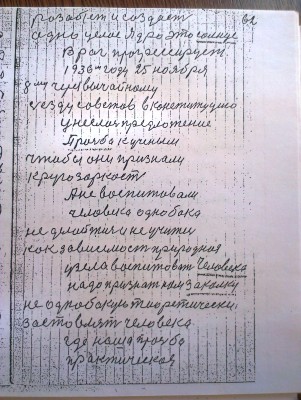 62
розовьет и создает
одно целое Ядро это солнце
Враг прогрессирует.
1936м году 25 ноября
8му чрезвычайному
съезду советов в конституцию
у нес предложение
Прозба к ученым
чтобы они признали
кругозаркость
А не воспитовали
человека однобока
не делобтик и не учитки
как зависемост природная
узела воспитоват Человека
надо признат нам Закалку
не однобокую теоретически
заставлят человека
где наша прозба
практическая